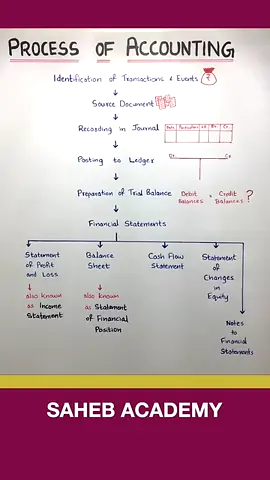 PROCESS OF ACCOUNTING
Identification of Transactions & Events ₹
Source Document
Recording in Journal
Date Particulars L.F. Dr. Cr.
Posting to Ledger
Dr. Cr.
Preparation of Trial Balance
Debit Balances = Credit Balances ?
Financial Statements
Statement of Profit and Loss
also known as Income Statement
Balance Sheet
also known as Statement of Financial Position
Cash Flow Statement
Statement of Changes in Equity
Notes to Financial Statements
SAHEB ACADEMY